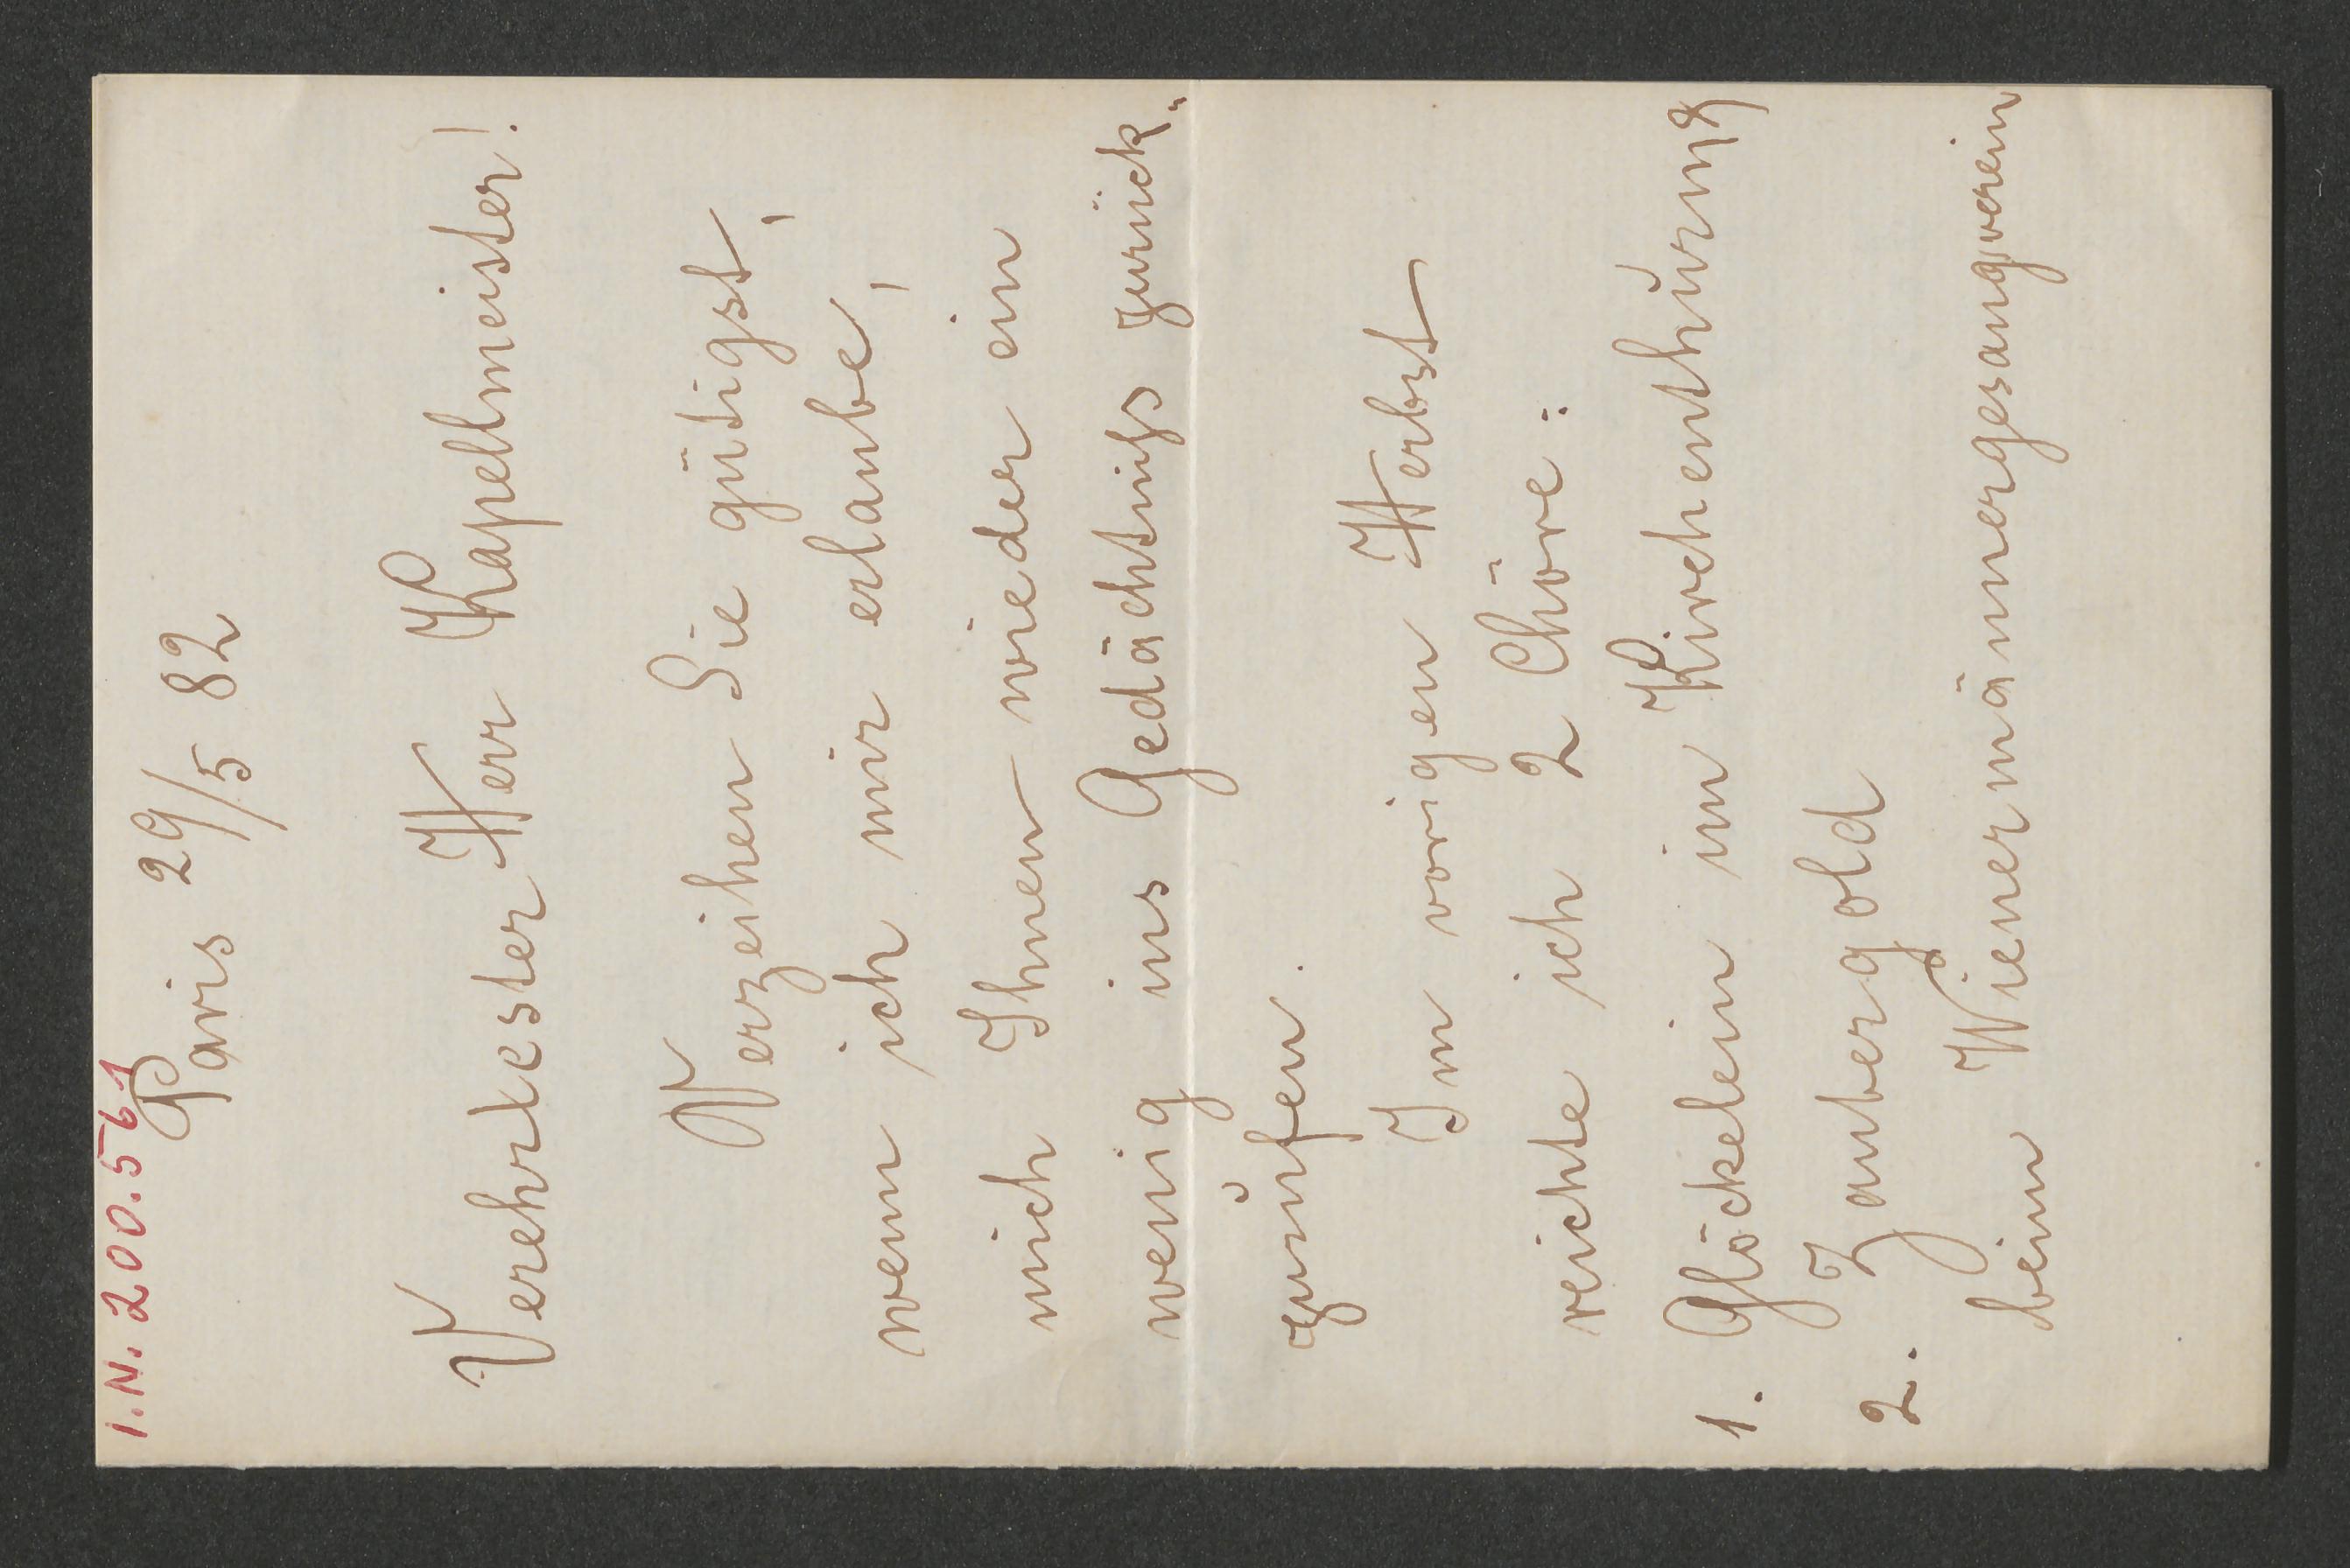 I.N. 200.561
Paris 29/5 82
Verehrtester Herr Kapellmeister!
Verzeihen Sie gütigst,
wenn ich mir erlaube,
mich Ihnen wieder ein
wenig ins Gedächtniss zurück-
zurufen.
Im vorigen Herbst
reichte ich 2 Chöre:
1. Glöckelein im Kirchenthurm
2. Zaubergold
beim Wienermännergesangverein